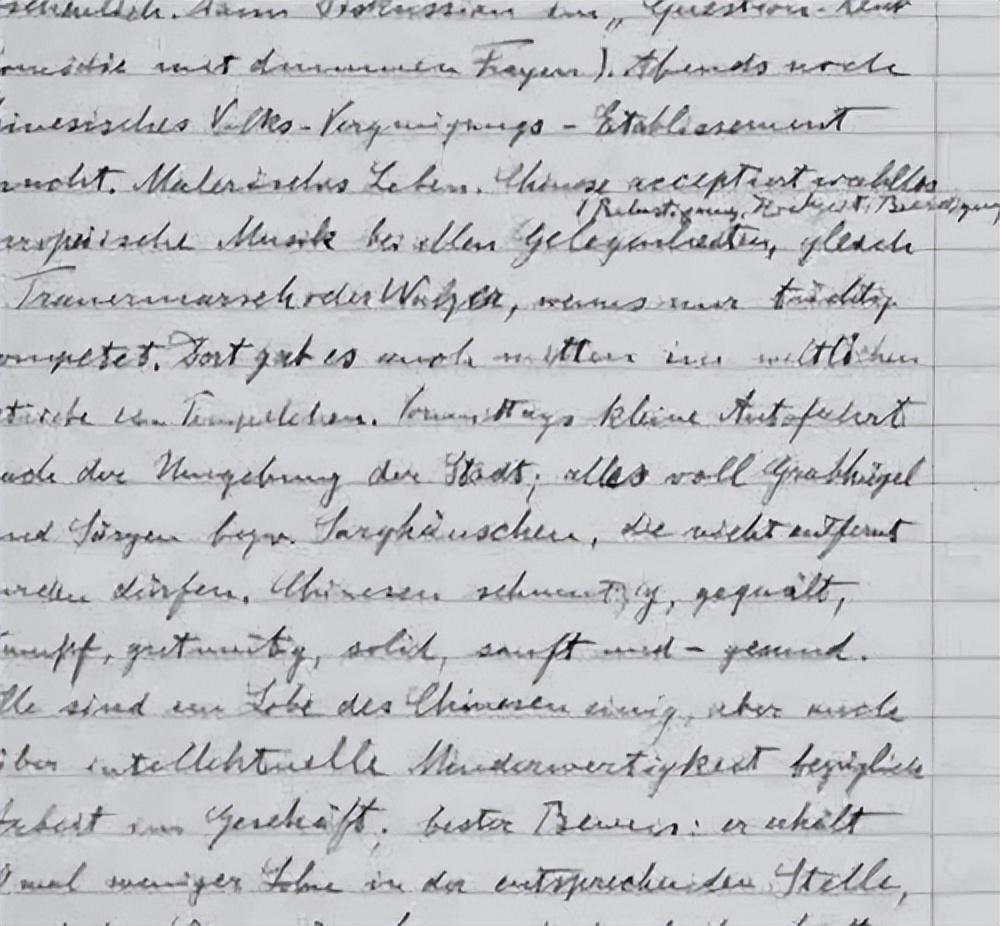 scheulich. Dann Diskussion (im „Question-Rent
omödie mit dummen Fragen). Abends noch
inesisches Volks-Vergnügungs-Etablissement
sucht. Malerisches Leben. Chinese acceptiert wahllos
(Belustigung, Hochzeit, Beerdigung
uropäische Musik bei allen Gelegenheiten, gleich
Trauermarsch oder Walzer, wenns nur tüchtig
ompetet. Dort gab es auch mitten im weltlichen
triebe ein Tempelchen. Vormittags kleine Autofahrt
ach der Umgebung der Stadt; alles voll Grabhügel
nd Särgen bezw. Sarghäuschen, die nicht entfernt
erden dürfen. Chinesen schmutzig, gequält,
umpf, gutmütig, solid, sanft und – gesund.
lle sind im Lobe des Chinesen einig, aber auch
über intellektuelle Minderwertigkeit bezüglich
Arbeit im Geschäft; bester Beweis: er erhält
mal weniger Lohn in der entsprechenden Stelle,